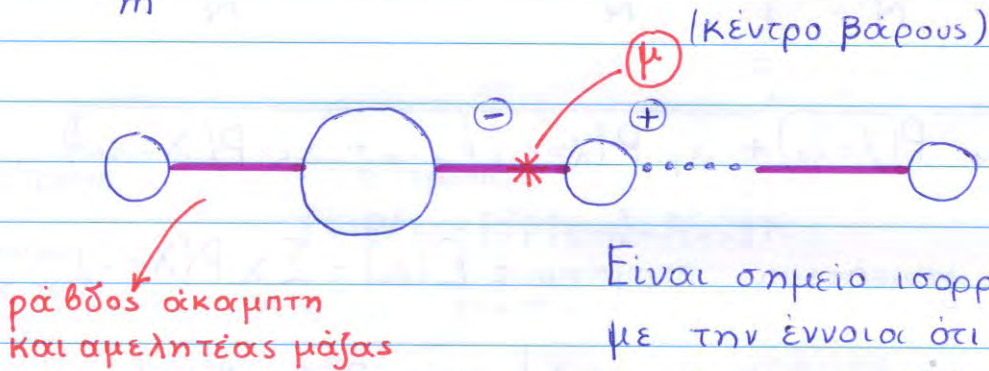 m
(κέντρο βάρους)
μ
- +
ράβδος άκαμπτη
και αμελητέας μάζας
Είναι σημείο ισορρ
με την έννοια ότι